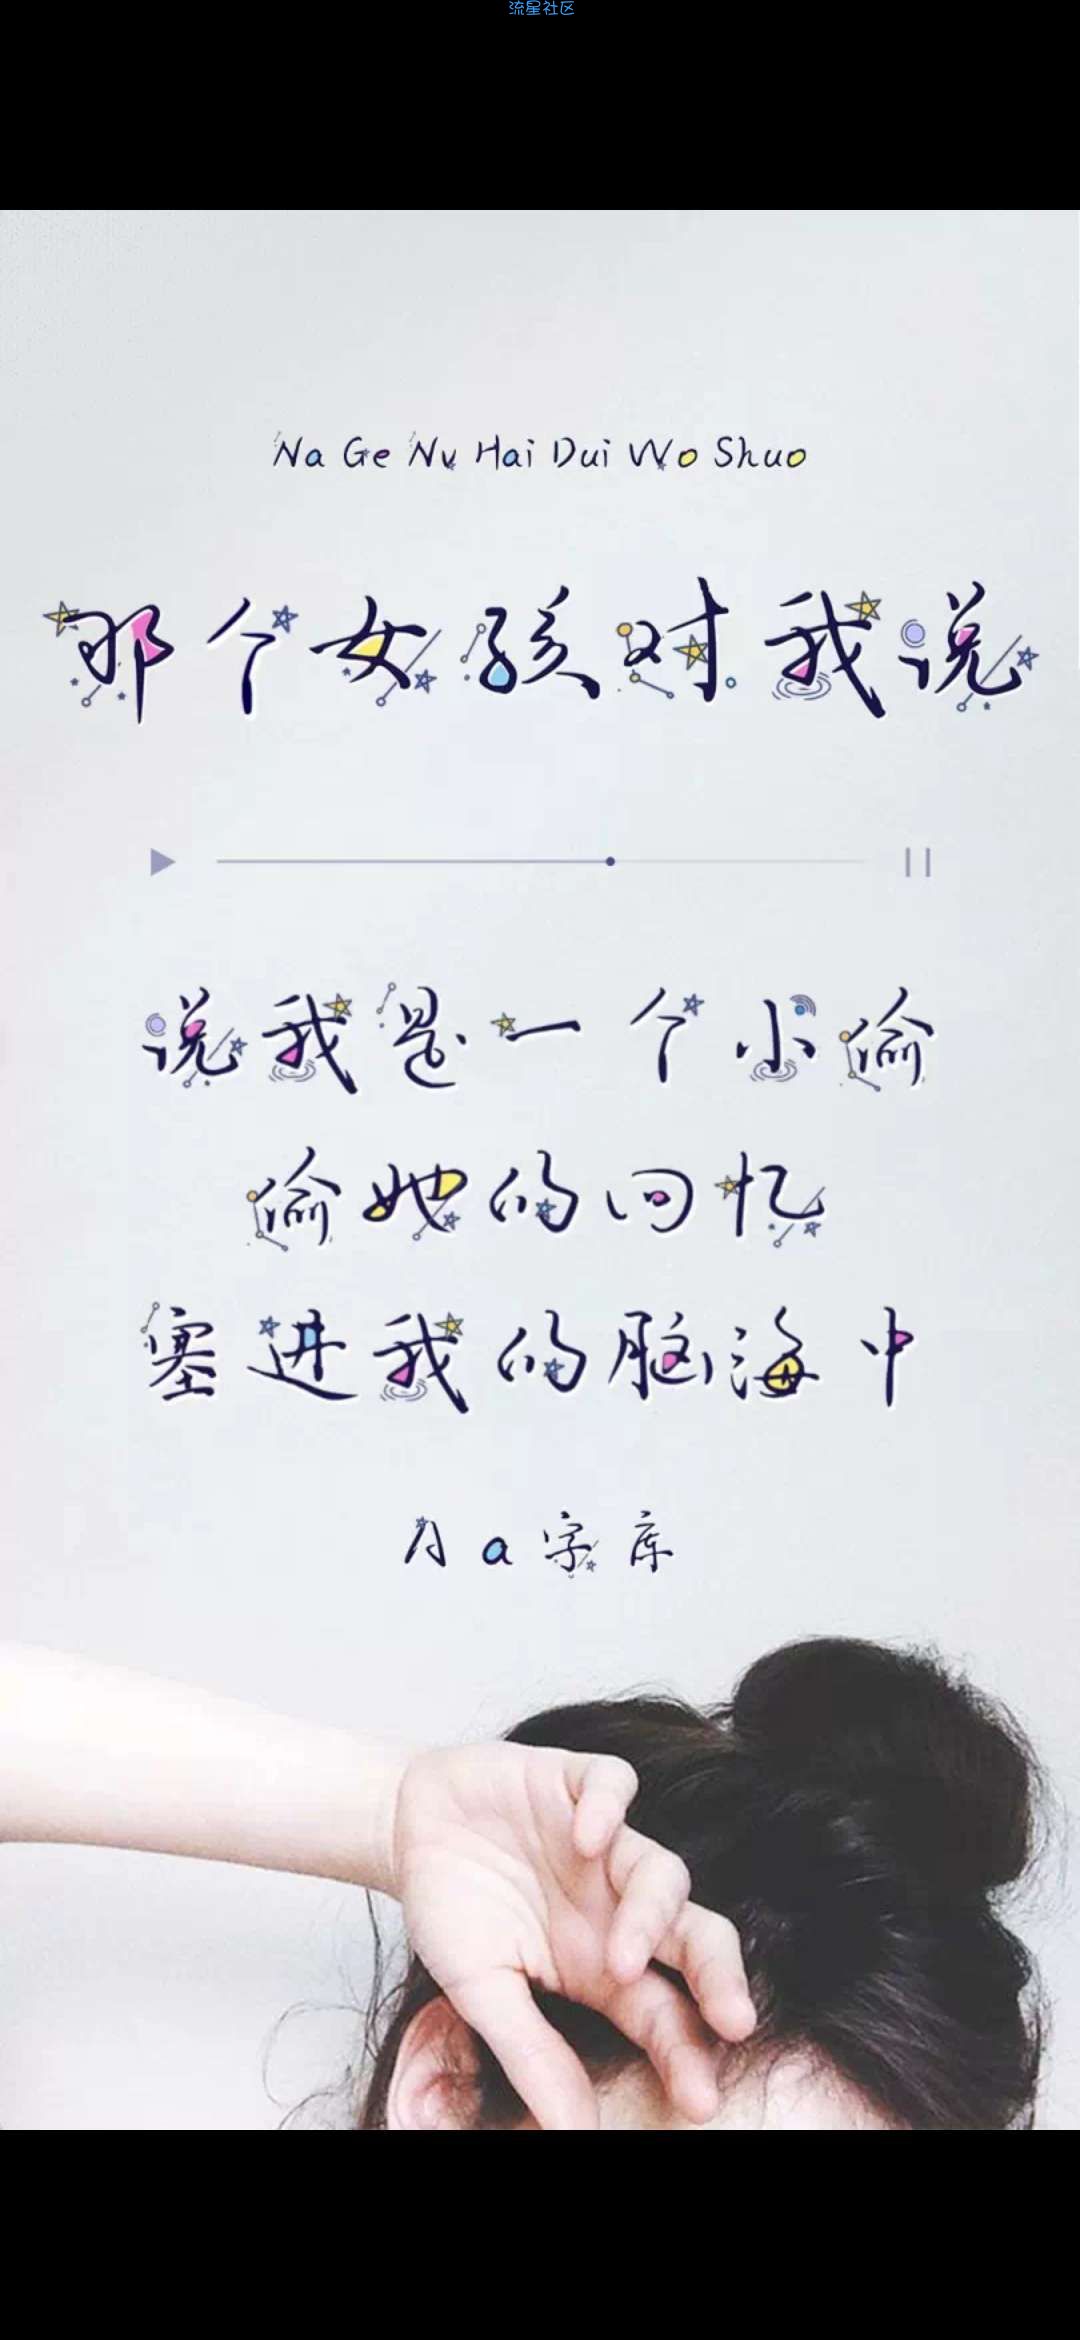 流星社区
Na Ge Nv Hai Dui Wo Shuo
那个女孩对我说
说我是一个小偷
偷她的回忆
塞进我的脑海中
Aa字库